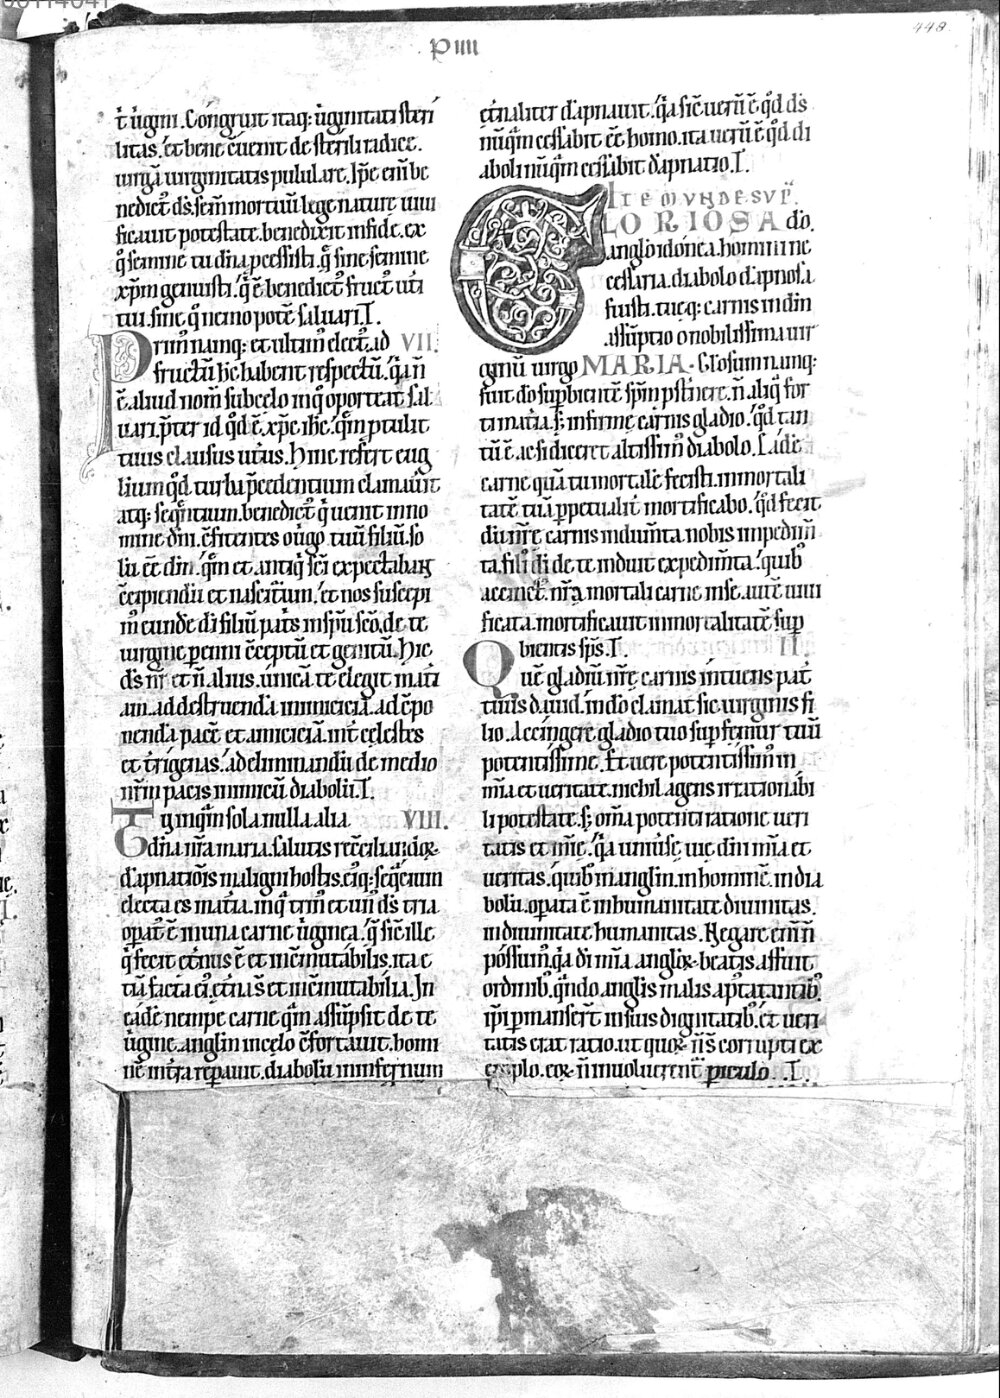 448
P IIII
t̄ ũgini. Congruit itaq; ũginitati steri
litas. et bene ēuenit de sterili radice.
uirgā uirginitatis pululare. Ip̄e eni be
nedict᷒ d̄s. sem̄ mortuū lege nature uiui
ficauit potestate. benedixit in fide. ex
q̊ semine tu dñā pcessisti. q̊ sine semine
xp̄m genuisti. q̄ ē benedict᷒ fruct᷒ uēt
tui. sine q̊ nemo potē saluari. I.
Prim᷒ nanq; et ultim᷒ elect᷒. ad VII.
fructū hc̄ habent respectū. q̄a n̄
ē aliud nom̄ sub celo in q̊ oporteat sal
uari. p̄ter id qd̄ ē xp̄c ih̄c. q̄m ptulit
tuus clausus uēt᷒. Hinc refert eug
lium qd̄ turba p̄cedentium clamauit
atq; seq̄ntium. benedict᷒ q̄ uenit in no
mine dñi. c̄fitentes o uigo tuū filiū. so
lū ēē dñm. q̄m et antiq̄ sc̄i expectabāt
c̄cipiendū et nasciturū. et nos suscepi
m᷒ eundē di filiū pat̄s in sp̄u sc̄o. de te
uirgine perenni c̄ceptū et genitū. Hic
d̄s nr̄ et n̄ alius. unicā te elegit mat̄
am. ad destruenda inimiciciā. ad c̄po
nenda pacē et amiciciā. int̄ celestes
et t̄rigenas. ad elimmandū de medio
nr̄m pacis inimicū diabolū. I.
Tu inquā sola nulla alia VIII.
o dñā nr̄a maria. salutis rec̄ciliandoꝝ
dāpnatiōis maligni hostis. eq̄; seq̄cium
electa es mat̄ia. in q̊ trin᷒ et un᷒ d̄s tria
opat᷒ ē in una carne ũginea. q̊ sic̄ ille
q̄ fecit et̄nus ē et inc̄mutabilis. ita c̄
tū facta c̄t et̄na sūt et inc̄mutabilia. In
eadē nempe carne q̄m assūpsit de te
ũgine. anglm̄ in celo c̄fortauit. homi
nē in t̄ra repauit. diabolū in infernum
et̄naliter dāpnauit. q̄a sic̄ uerū ē qd̄ d̄s
nūq̄m cessabit ēē homo. ita uerū ē qd̄ di
aboli nūq̄m cessabit dāpnatio. I.
ITE MVNDE SVP̄.
GLORIOSA do.
anglō idonea. homini ne
cessaria. diabolo dāpnosa
fuisti. tueq; carnis in dm̄
assūptio o nobilissima uir
ginū uirgo MARIA. Grosum nanq;
fuit dō supbientē sp̄m pst̄nere. n̄ aliq̊ for
ti mat̄ia. s; infirme carnis gladio. qd̄ tan
tū ē ac si diceret altissim᷒ diabolo. Eādē
carnē quā tu mortalē fecisti. inmortali
tatē tuā ppetualit̄ mortificabo. qd̄ fecit
diū nr̄e carnis indum̄ta nobis impedim̄
ta. fili᷒ di de te induit expedim̄ta. quib᷒
accinct᷒. nr̄a mortali carne in se. a uirtute uiui
ficata. mortificauit inmortalitatē sup
bientis sp̄s. I. II
Quē gladiū nr̄e carnis intuens pat̄
tuus dauid. in dō clamat sic uirginis fi
lio. Accingere gladio tuo sup femur tuū
potentissime. Et uere potentissim᷒ in
mīa et ueritate. nichil agens irrationabi
li potestate. s; om̄a potenti ratione ueri
tatis et mīe. q̄a uniuse uie dm̄ mīa et
ueritas. quib᷒ in anglm̄. in hominē. in dia
bolū. opata ē in humanitate diuinitas.
in diuinitate humanitas. Negare enī n̄
possum᷒. q̄a di mīa angloꝝ beatis affuit
ordinib᷒. q̄ndo anglis malis. aptatantib᷒.
ip̄i pmanser̄t in suis dignitatib᷒. Et ueri
tatis erat ratio. ut quoꝝ n̄ s̄ corrupti ex
exemplo. eoꝝ n̄ inuoluerent᷒ piculo. I.